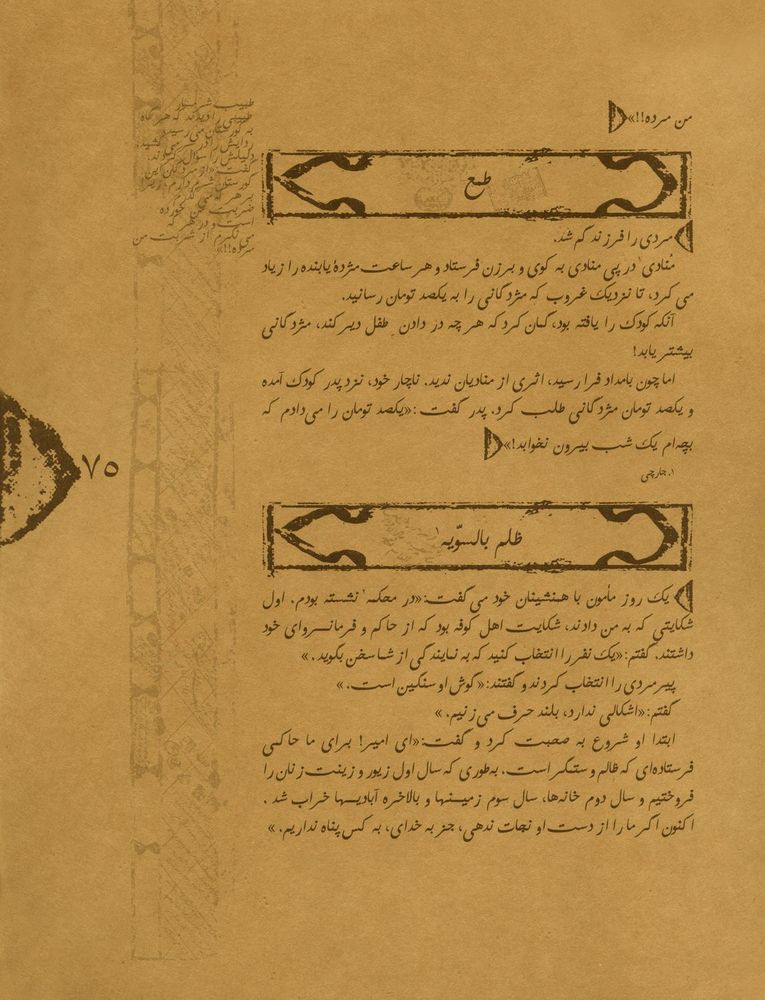 من مرده!!»
طمع
مردی را فرزند گم شد.
مُنادی۱ در پی منادی به کوی و برزن فرستاد و هر ساعت مژدهٔ یابنده را زیاد
می کرد، تا نزدیک غروب که مژدگانی را به یکصد تومان رسانید.
آنکه کودک را یافته بود، گمان کرد که هر چه در دادن طفل دیر کند، مژدگانی
بیشتر یابد!
اما چون بامداد فرا رسید، اثری از منادیان ندید. ناچار خود، نزد پدر کودک آمده
و یکصد تومان مژدگانی طلب کرد. پدر گفت :«یکصد تومان را می‌دادم که
بچه‌ام یک شب بیرون نخوابد!»
۱. جارچی
ظلم بالسّویه۱
یک روز مأمون با همنشینان خود می گفت:«در محکمه۲ نشسته بودم. اول
شکایتی که به من دادند، شکایت اهل کوفه بود که از حاکم و فرمانروای خود
داشتند. گفتم:«یک نفر را انتخاب کنید که به نمایندگی از شما سخن بگوید.»
پیرمردی را انتخاب کردند و گفتند:«گوش او سنگین است.»
گفتم:«اشکالی ندارد، بلند حرف می زنیم.»
ابتدا او شروع به صحبت کرد و گفت:«ای امیر! برای ما حاکمی
فرستاده‌ای که ظالم و ستمگر است. به‌طوری که سال اول زیور و زینت زنان را
فروختیم و سال دوم خانه‌ها، سال سوم زمینها و بالاخره آبادیها خراب شد.
اکنون اگر ما را از دست او نجات ندهی، جز به خدای، به کس پناه نداریم.»
۷۵
طبیب شرمسار
طبیبی را دیدند که هر گاه
به گورستان می رسید
ردایش را در سر می کشید.
دلیلش را سؤال کردند.
گفت: «از مردگان این
گورستان شرم دارم. زیرا
بر هر که می گذرم
ضربت من خورده
است و در هر که
می نگرم از شربت من
مرده!!»